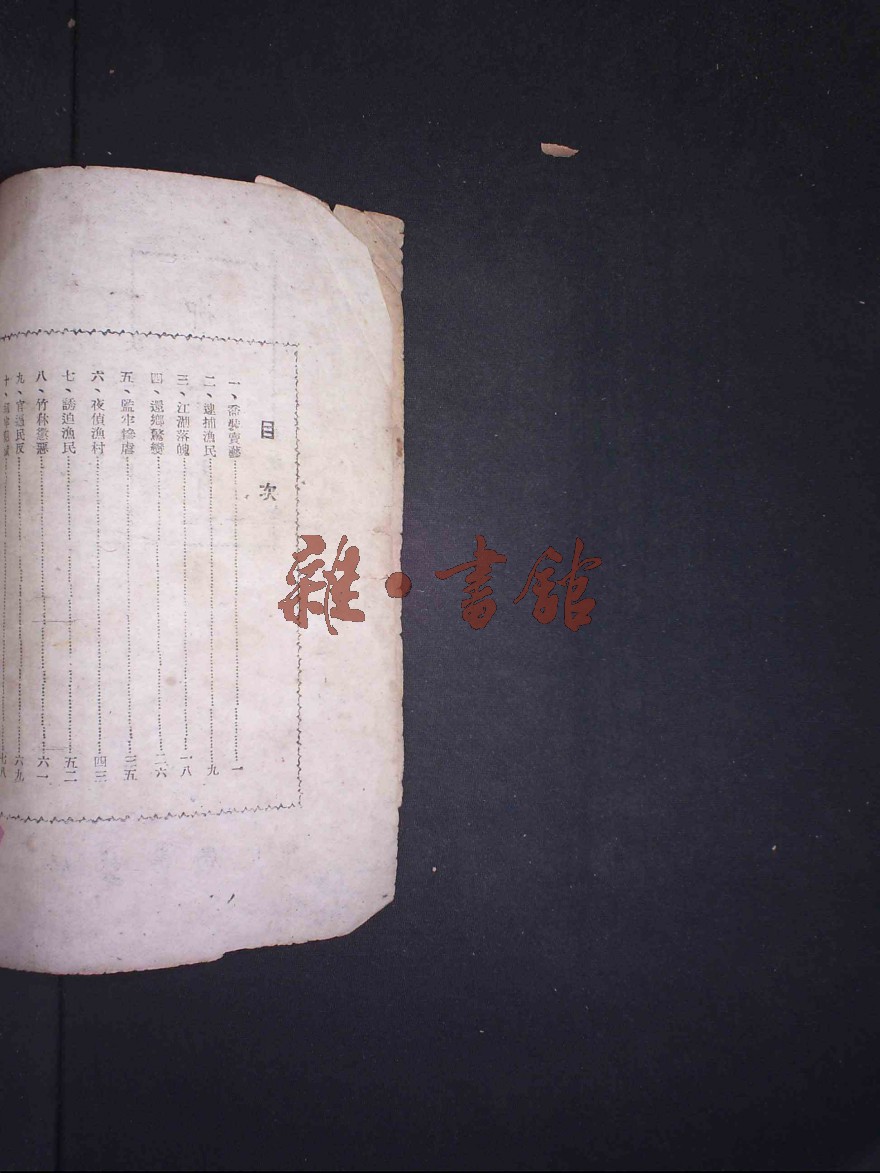 目次
一、喬裝賣藝…………一
二、逮捕漁民…………九
三、江湖落魄…………一八
四、還鄉驚變…………二六
五、監牢慘虐…………三五
六、夜偵漁村…………四三
七、誘迫漁民…………五二
八、竹林懲惡…………六一
九、官逼民反…………六九
十、…………七八
雜·書館